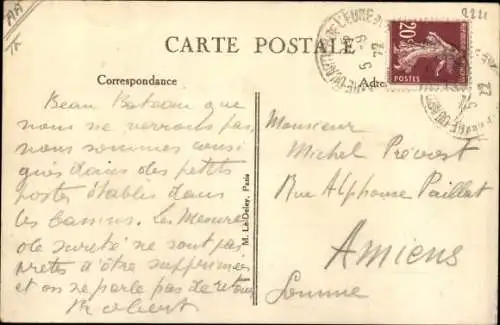 AA
2221
CARTE POSTALE
20c
POSTES
Correspondance
Adre
Beau Bateau que
nous ne verrons pas,
nous sommes consi
gnés dans des petits
postes établis dans
les bassins. Les Mesures
de sureté ne sont pas
prêtes d'être supprimées
et on ne parle pas de retour
Robert
M. Le Deley, Paris
Monsieur
Michel Prévost
Rue Alphonse Paillat
Amiens
Somme